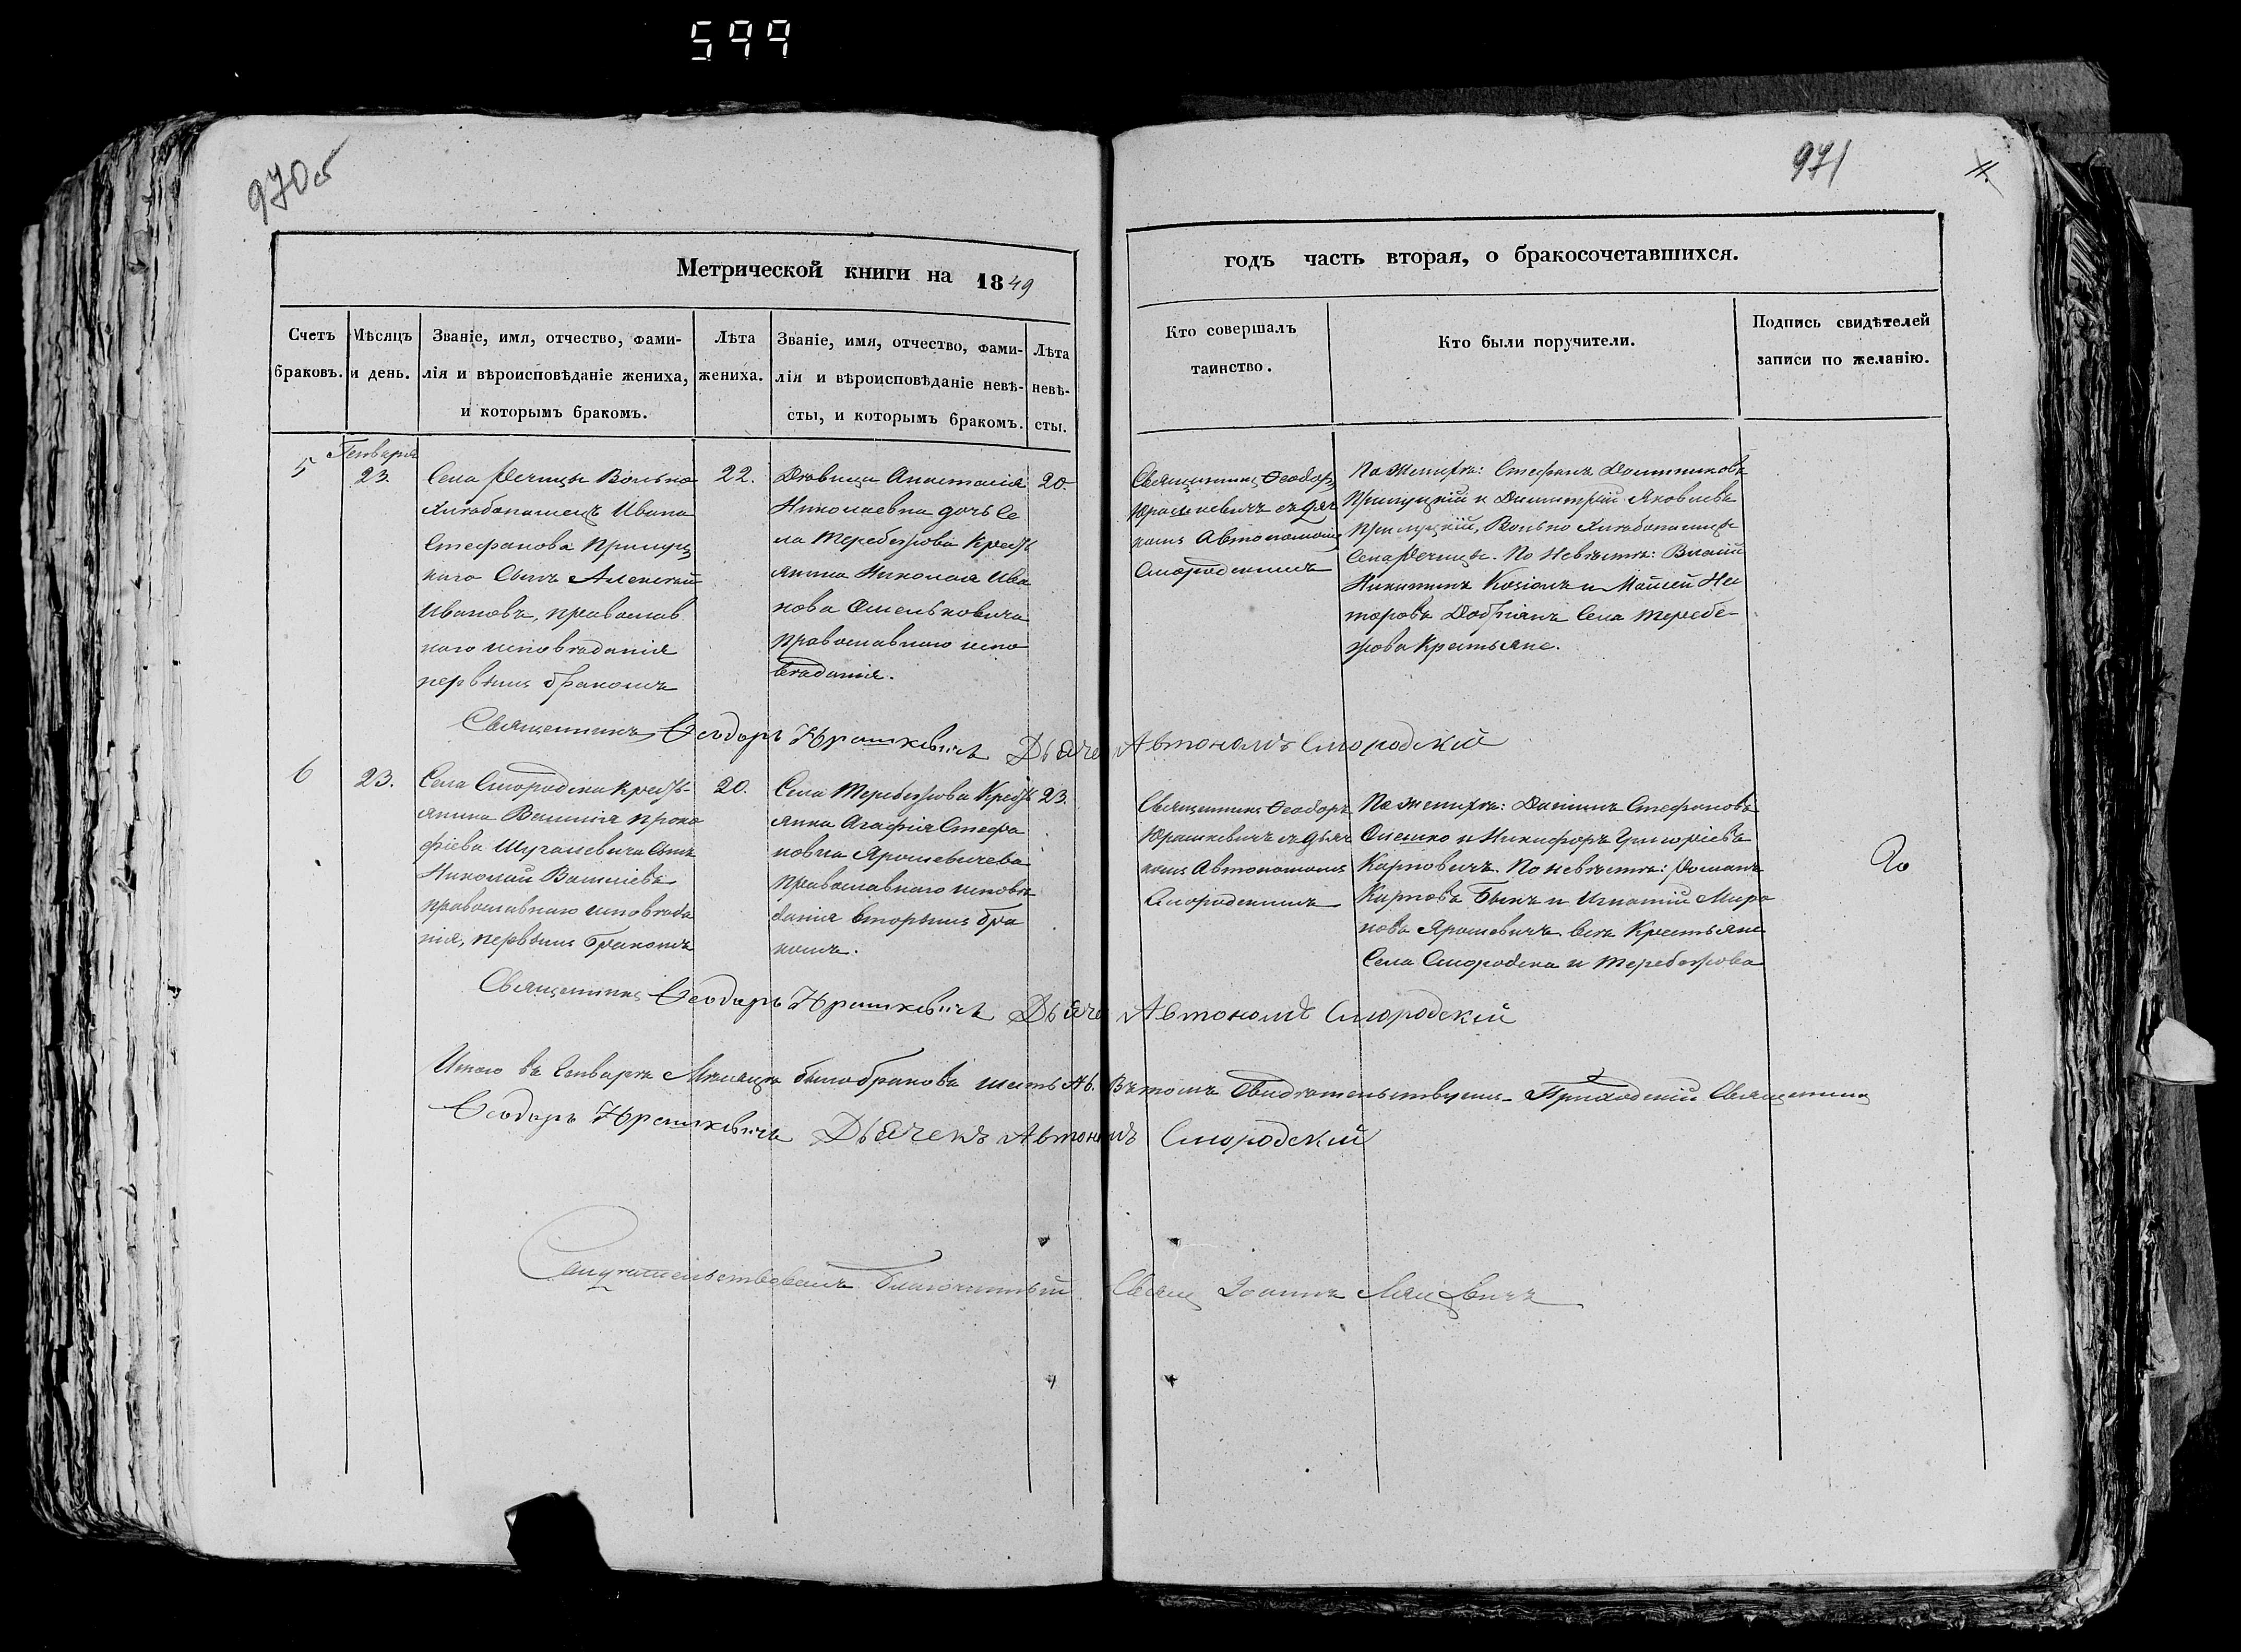 599
970об
971
Метрической книги на 1849
годъ часть вторая, о бракосочетавшихся.
Счетъ браковъ.
Мѣсяцъ и день.
Званіе, имя, отчество, фами-
лія и вѣроисповѣданіе жениха,
и которымъ бракомъ.
Лѣта
жениха.
Званіе, имя, отчество, фами-
лія и вѣроисповѣданіе невѣ-
сты, и которымъ бракомъ.
Лѣта
невѣ-
сты.
Кто совершалъ
таинство.
Кто были поручители.
Подпись свидѣтелей
записи по желанію.
5
Генваря
23.
Села Речицы Вольно
хлѣбопашецъ Ивана
Стефанова Прилуц
каго Сынъ Алексѣй
Ивановъ, православ
наго исповѣданія
первымъ бракомъ
22.
Дѣвица Анастасія
Николаевна дочь Се
ла Теребежова Кресть
янина Николая Ива
нова Омельковича
православнаго испо
вѣданія.
20.
Священникъ Ѳеодоръ
Юрашкевичъ съ дьяч
комъ Автономомъ
Смородскимъ
По Женихѣ: Стефанъ
Прилуцкій и Димитрій Яковлевъ
Прилуцкій, Вольно хлѣбопашцы
Села Речицы. По Невѣстѣ: Власій
Никитинъ Козловъ и Моисей Не
Села Теребе-
жова Крестьяне.
Священникъ Ѳеодоръ Юрашкевичъ Дьячекъ Автономъ Смородскій
6
23.
Села Смородска Кресть-
янина Василія Проко
фіева Шугалевича Сынъ
Николай Васильевъ
православнаго исповѣда
нія, первымъ бракомъ
20.
Села Теребежова Кресть
янка Агафія Стефа
новна Ярошевичева
православнаго исповѣ
данія вторымъ бра
комъ.
23.
Священникъ Ѳеодоръ
Юрашкевичъ съ дьяч
комъ Автономомъ
Смородскимъ
По женихѣ: Даніилъ Стефановъ
Олешко и Никифоръ Григоріевъ
Карповичъ. По невѣстѣ: Романъ
Карповъ Быкъ и Игнатій Миро
новъ Ярошевичъ. Всѣ Крестьяне
Села Смородска и Теребежова
Священникъ Ѳеодоръ Юрашкевичъ Дьячекъ Автономъ Смородскій
Итого въ Генварѣ Мѣсяцѣ было браковъ шесть №6. Въ томъ Свидѣтельствуемъ Приходскій Священникъ
Ѳеодоръ Юрашкевичъ Дьячекъ Автономъ Смородскій
Свидѣтельствовалъ Благочинный Свящ Іоаннъ